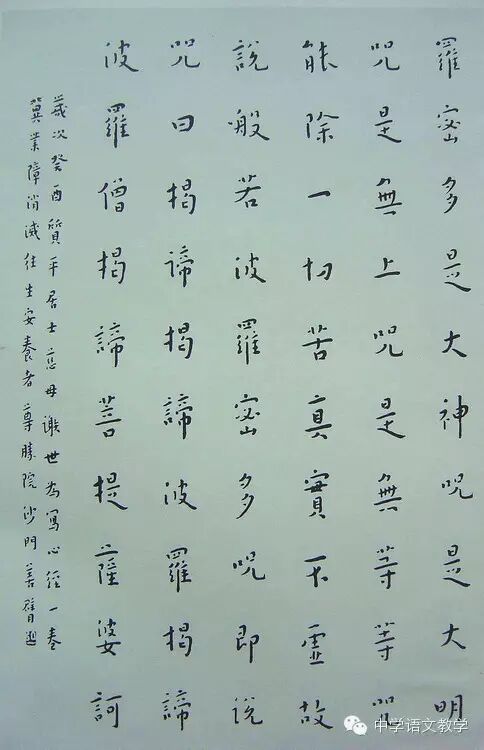 羅蜜多是大神呪是大明
呪是無上呪是無等等呪
能除一切苦真實不虛故
說般若波羅蜜多呪即說
呪曰揭諦揭諦波羅揭諦
波羅僧揭諦菩提薩婆訶
歲次癸酉質平居士慈母謝世為寫心經一卷
冀業障消滅往生安養者尊勝院沙門善臂
中学语文教学